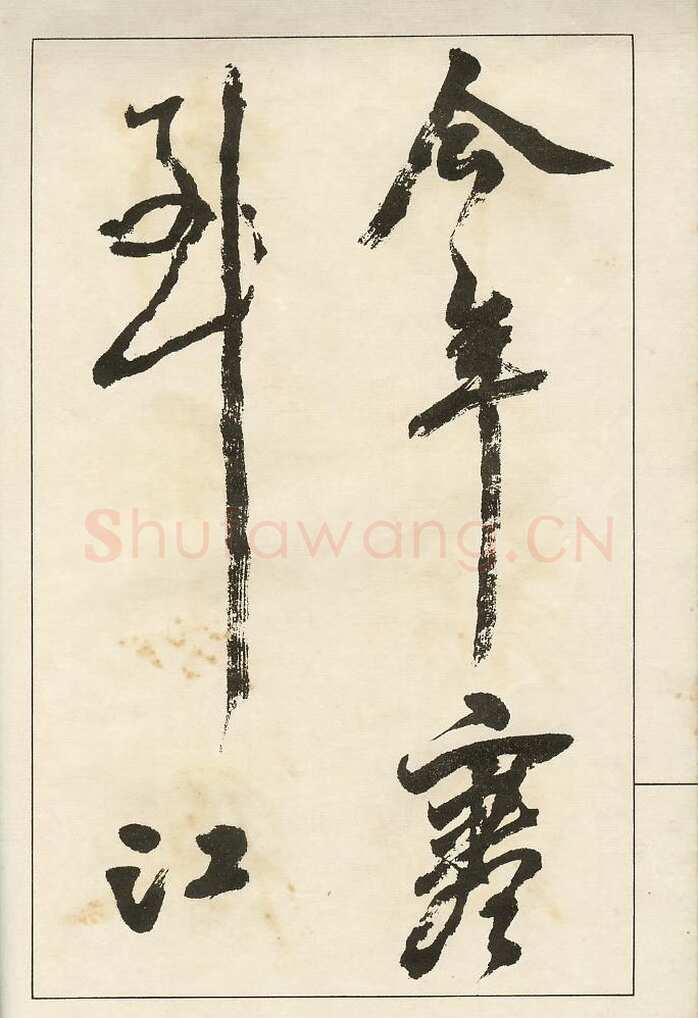 今年寒
到江
Shufawang.CN